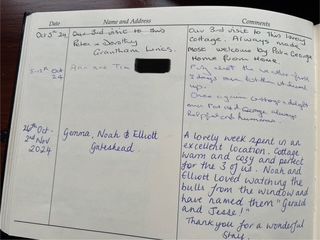 Date Name and Address Comments
Oct 5th 24 Our 3rd visit to this
Peter & Dorothy
Grantham Lincs.
Our 3rd visit to this lovely
Cottage. Always made
most welcome by Pat & George
Home from Home.
Oct
24
Ann and Tim
the weather - first
3 days
up.
Once again Cottage a delight
and Pat and George always
helpful and humorous.
26th Oct -
2nd Nov
2024
Gemma, Noah & Elliott
Gateshead
A lovely week spent in an
excellent location. Cottage
warm and cosy and perfect
for the 3 of us. Noah and
Elliott loved watching the
bulls from the window and
have named them "Gerald
and Jesse!"
Thank you for a wonderful
stay.